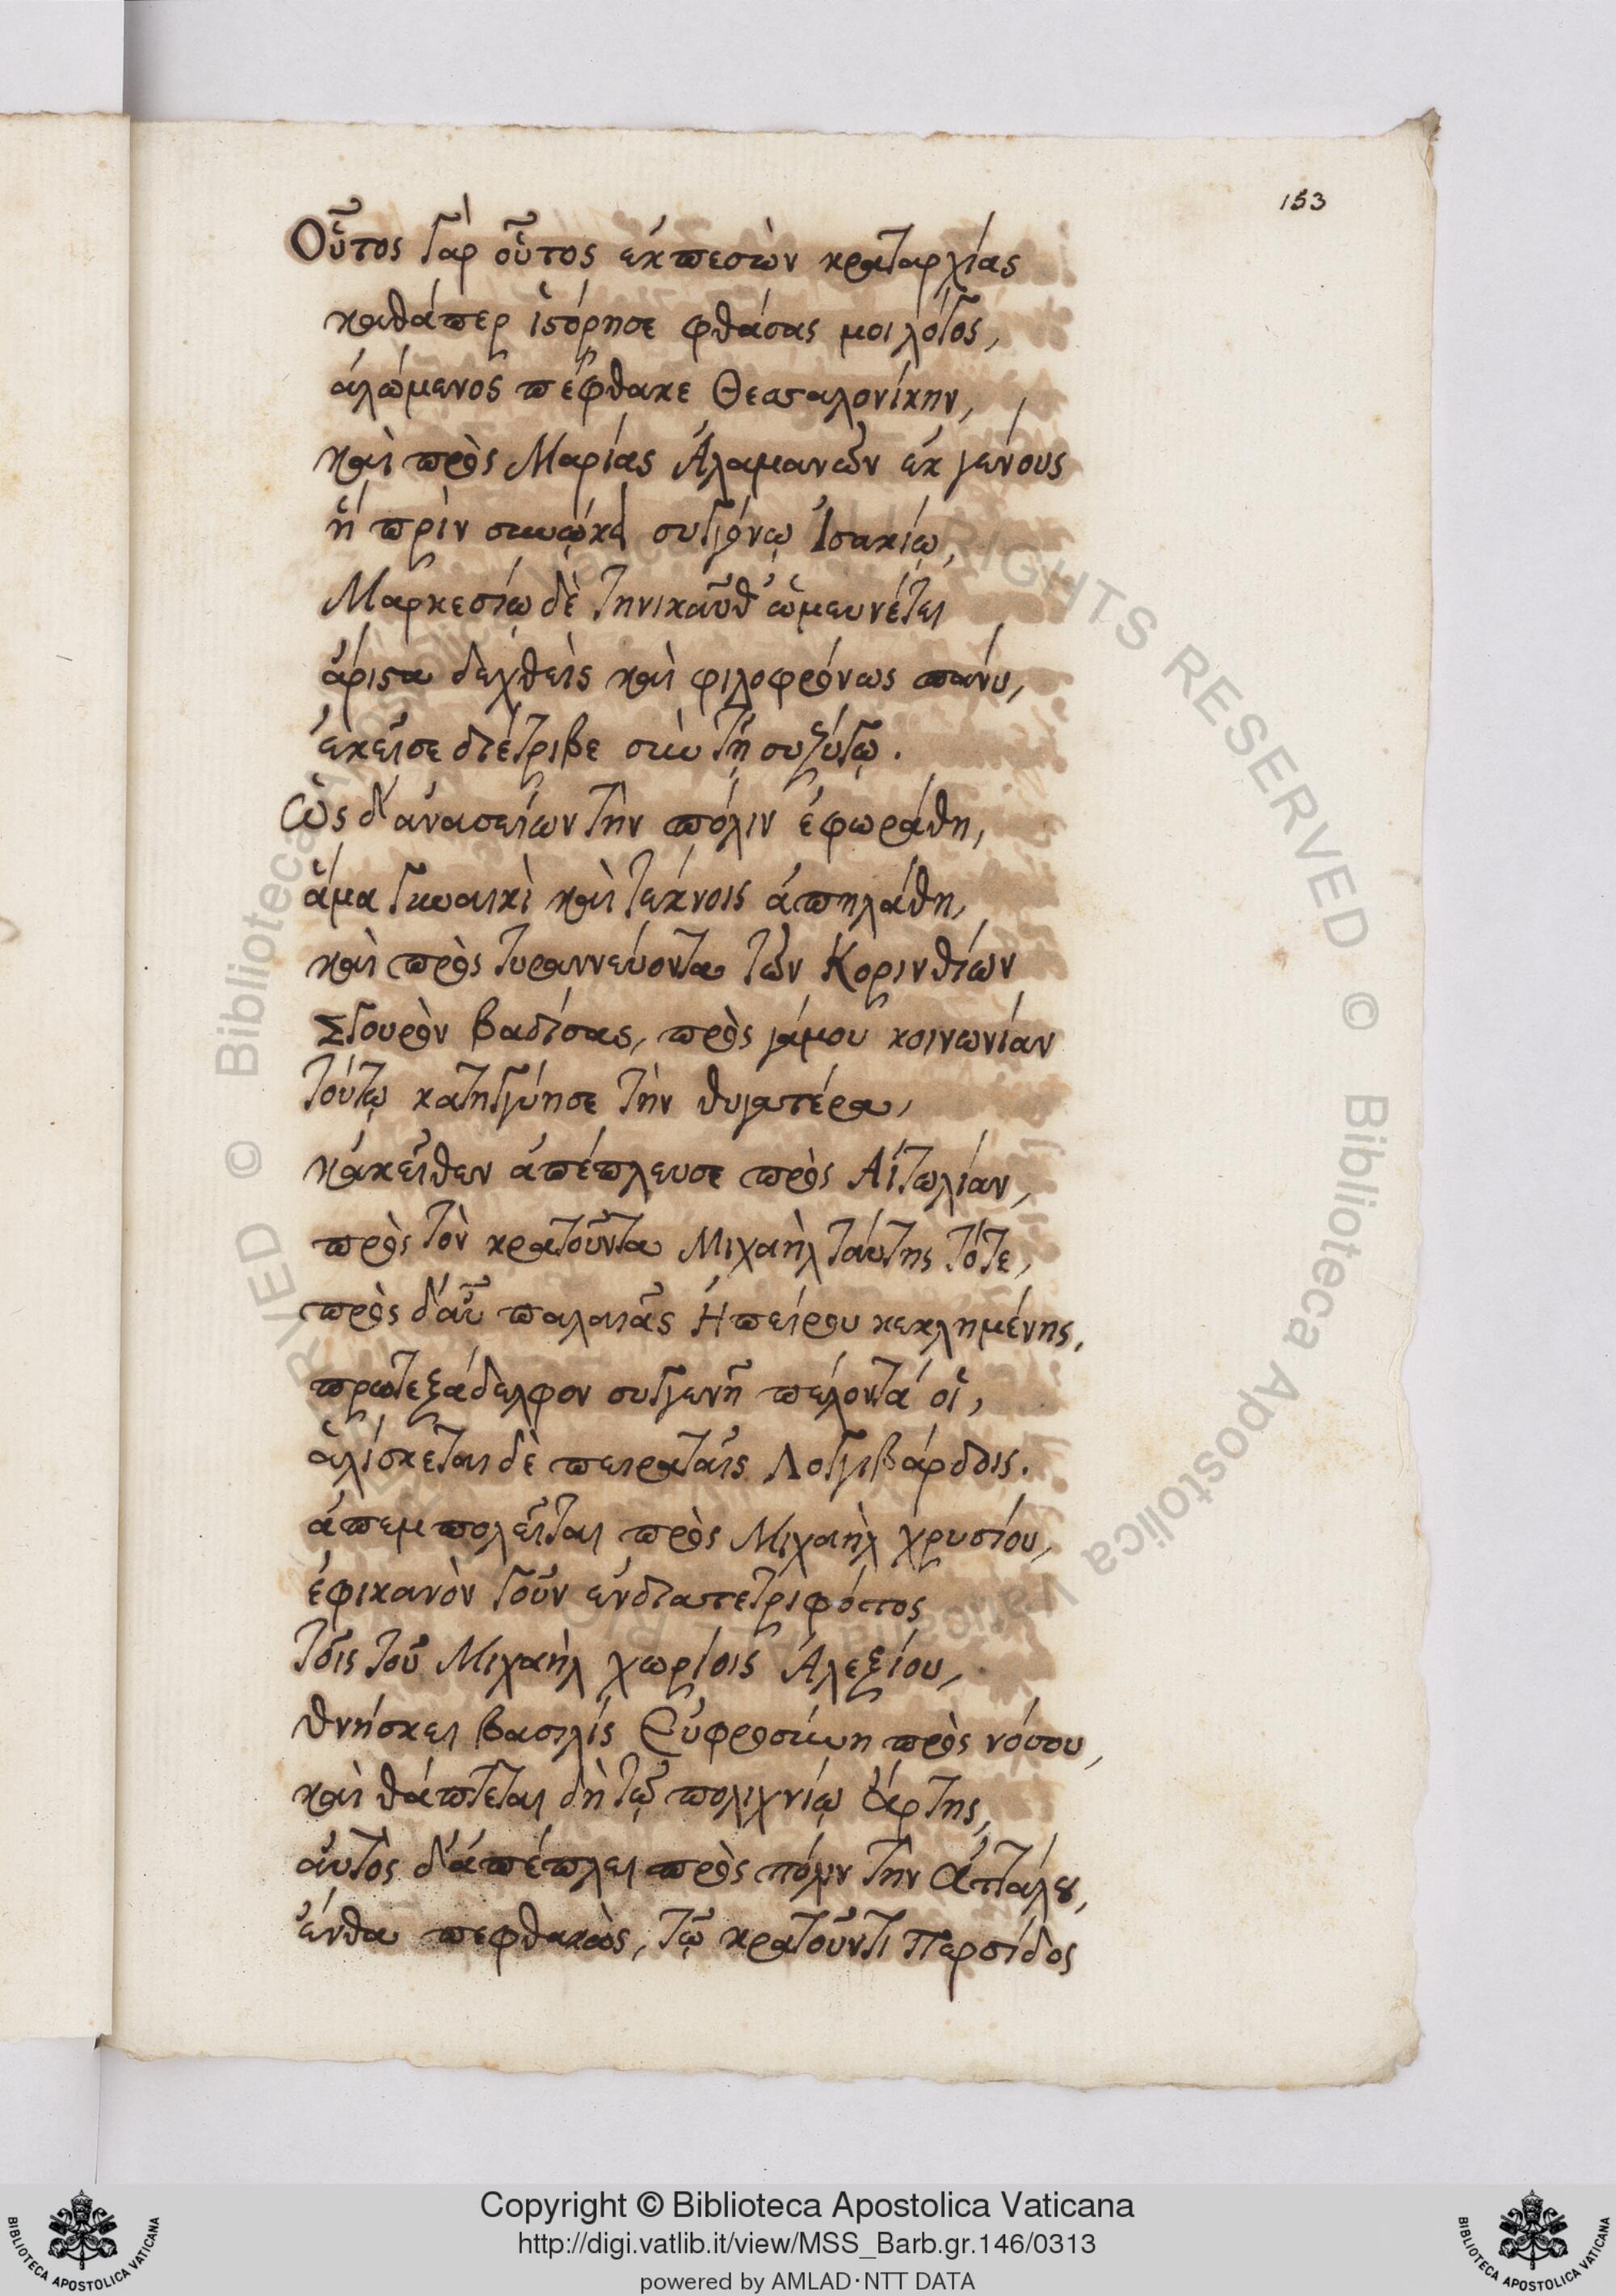 153
Οὗτος γὰρ οὗτος ἐκπεσὼν κραταρχίας
καθάπερ ἱστόρησε φθάσας μοι λόγος,
ἀλώμενος πέφθακε Θεσσαλονίκην,
καὶ πρὸς Μαρίας Ἀλαμανῶν ἐκ γένους
ἣ πρὶν συνῴκει συγγόνῳ Ἰσακίῳ,
Μαρκεσίῳ δὲ τηνικαῦθ' ὡμευνέτει
ἄριστα δεχθεὶς καὶ φιλοφρόνως πάνυ,
ἐκεῖσε διέτριβε σὺν τῇ συζύγῳ.
Ὡς δ' ἀνασείων τὴν πόλιν ἐφωράθη,
ἅμα γυναικὶ καὶ τέκνοις ἀπηλάθη,
καὶ πρὸς τυραννεύοντα τῶν Κορινθίων
Σγουρὸν βαδίσας, πρὸς γάμου κοινωνίαν
τούτῳ κατηγγύησε τὴν θυγατέρα,
κἀκεῖθεν ἀπέπλευσε πρὸς Αἰτωλίαν,
πρὸς τὸν κρατοῦντα Μιχαὴλ ταύτης τότε,
πρὸς δ' αὖ παλαιᾶς Ἠπείρου κεκλημένης,
πρωτεξάδελφον συγγενῆ πέλοντά οἱ,
ἁλίσκεται δὲ πειραταῖς Λογγιβάρδοις.
ἀπεμπολεῖται πρὸς Μιχαὴλ χρυσίου,
ἐφικανὸν γοῦν ἐνδιατετριφότος
τοῖς τοῦ Μιχαὴλ χωρίοις Ἀλεξίου,
θνήσκει βασιλὶς Εὐφροσύνη πρὸς νόσου,
καὶ θάπτεται δὴ τῷ πολιχνίῳ Ἄρτης,
αὐτὸς δ' ἀπέπλει πρὸς πόλιν τὴν Ἀττάλου,
ἔνθα πεφθακὼς, τῷ κρατοῦντι Περσίδος
Copyright © Biblioteca Apostolica Vaticana
http://digi.vatlib.it/view/MSS_Barb.gr.146/0313
powered by AMLAD·NTT DATA